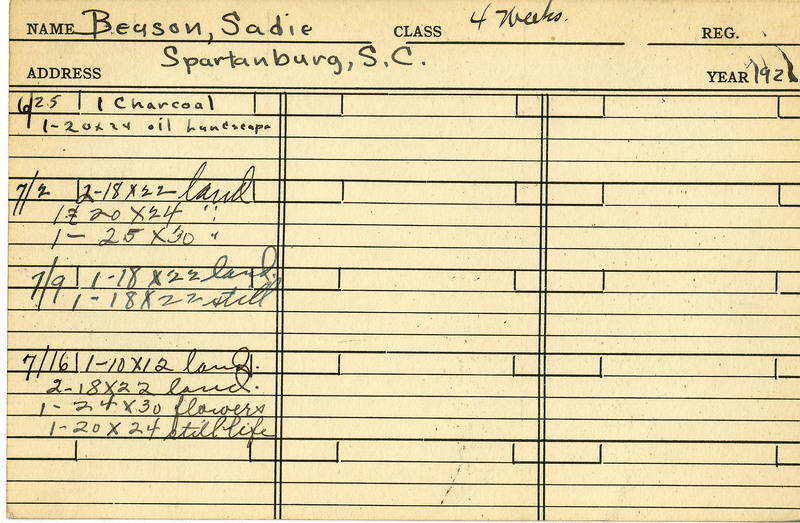 NAME Beason, Sadie CLASS 4 Weeks. REG.
ADDRESS Spartanburg, S.C. YEAR 1921
6/25 1 Charcoal
1-20x24 oil Landscape
7/2 2-18X22 land
1- 20X24 "
1- 25X30 "
7/9 1-18X22 land.
1-18X22 still
7/16 1-10X12 land.
2-18X22 land.
1-24X30 flowers
1-20X24 still life